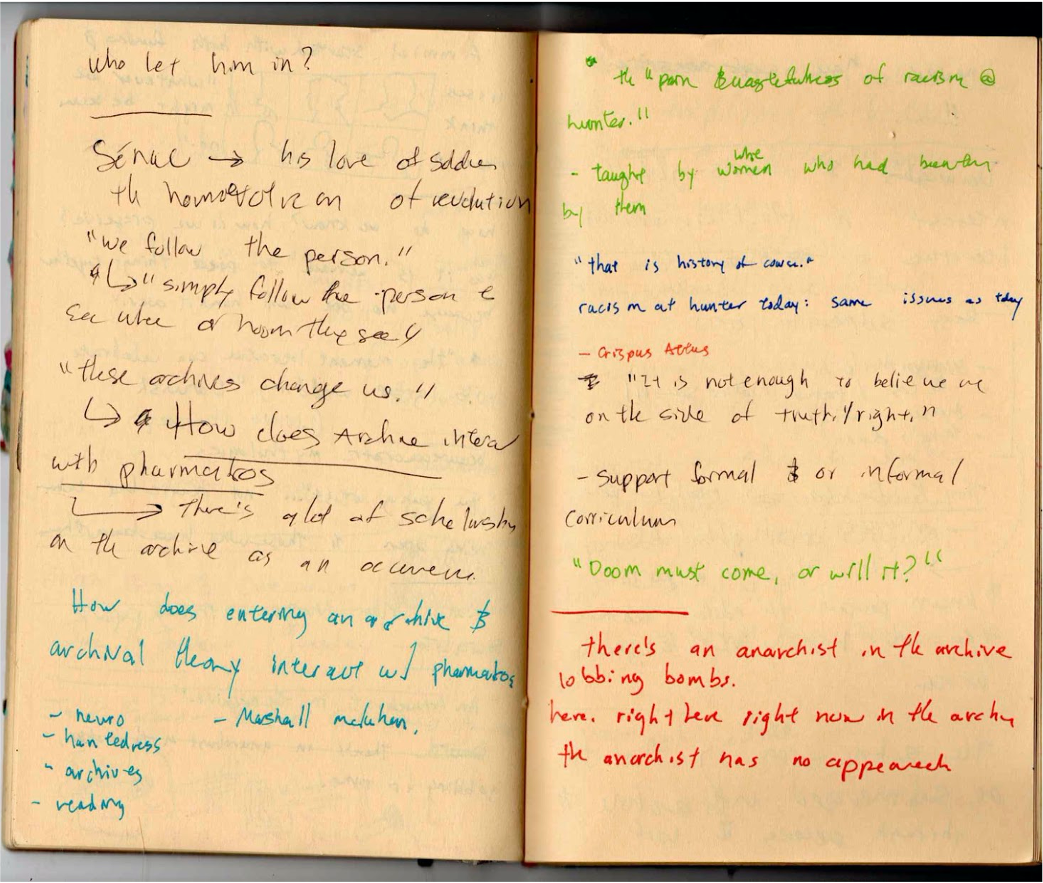 who let him in?
Sénac → his love of soldier
the homo of revolution
"we follow the person."
↳ "simply follow the person &
see who or whom they see"
"these archives change us."
↳ How does Archive intera
with pharmakos
There's a lot of scholarship
on the archive as an occurrence.
How does entering an archive &
archival theory interact w/ pharmakos
- neuro - Marshall mcluhan.
- hauntedness
- archives
- reading
the "pain of racism @
hunter."
- taught by women who had
white
by them
"that is history of course."
racism at hunter today: same issues as today
- Crispus Attus
"It is not enough to believe we
on the side of truth/right,"
- support formal & or informal
corriculum
"Doom must come, or will it?"
there's an anarchist in the archive
lobbing bombs.
here. right here right now in the archv
the anarchist has no appearach